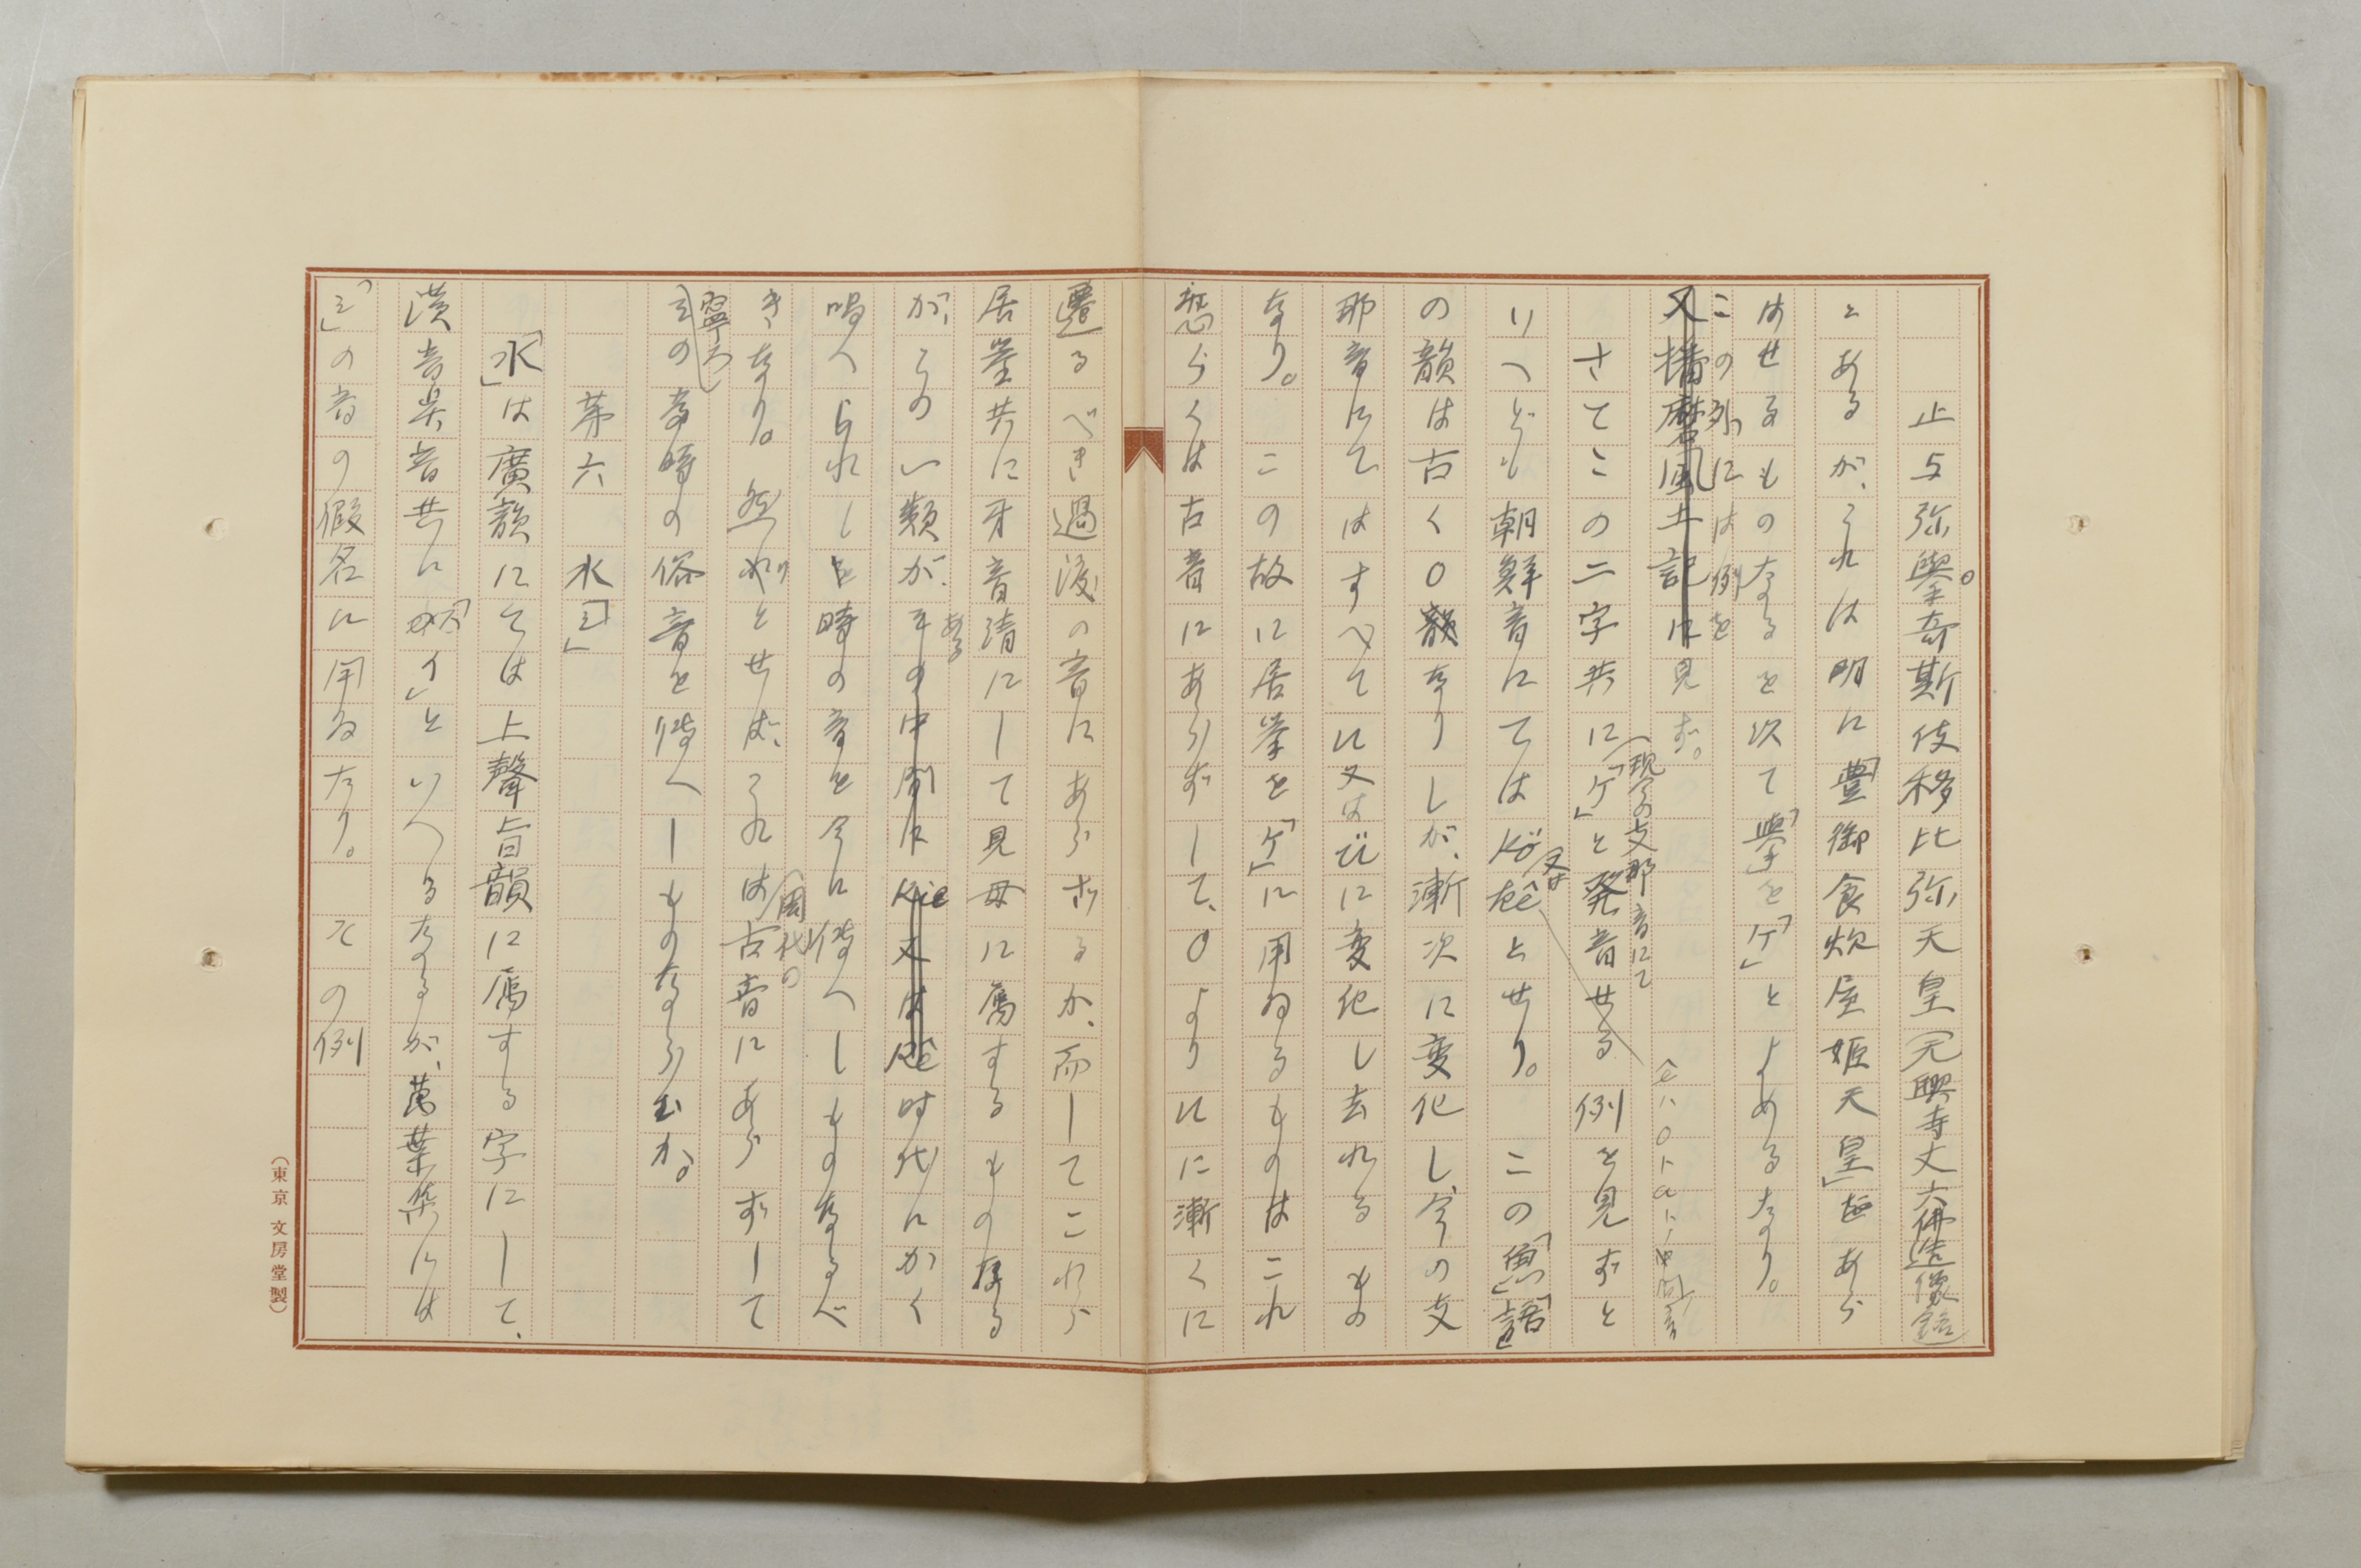 止与弥擧奇斯岐移比弥天皇(元興寺丈六佛造像銘)
とあるが、これは明に「豊御食炊屋姫天皇」をあら
はせるものなるを以て「擧」を「ケ」とよめるなり。
この外には例を
又播磨風土記に見ず。
さてこの二字共に「ケ」と発音せる例を見ずと
(現今の支那音にて
êハoトaトノ中間音
いへども朝鮮音にては kö 又は kê とせり。この「魚」「語」
の韻は古く o 韻なりしが、漸次に変化し、今の支
那音にてはすべて u 又は ü に変化し去れるもの
なり。この故に居擧を「ケ」に用ゐるものはこれ
恐らくは古音にあらずして、o より u に漸くに
遷るべき過渡の音にあらざるか、而してこれら
居擧共に牙音清にして見母に属するものなる
が、この類が、その中間に kie 又は kê 時代にかく
ある
唱へられし時の音を今に傳へしものなるべ
きなり。然りとせば、これは古音にあらずして
(周代の
寧ろ
その当時の俗音を傳へしものならむか。
第六 水「ミ」
「水」は廣韻にては上聲旨韻に属する字にして、
漢音呉音共に「スイ」といへるなるが、萬葉集には
「ミ」の音の假名に用ゐたり。その例
(東京 文房堂製)